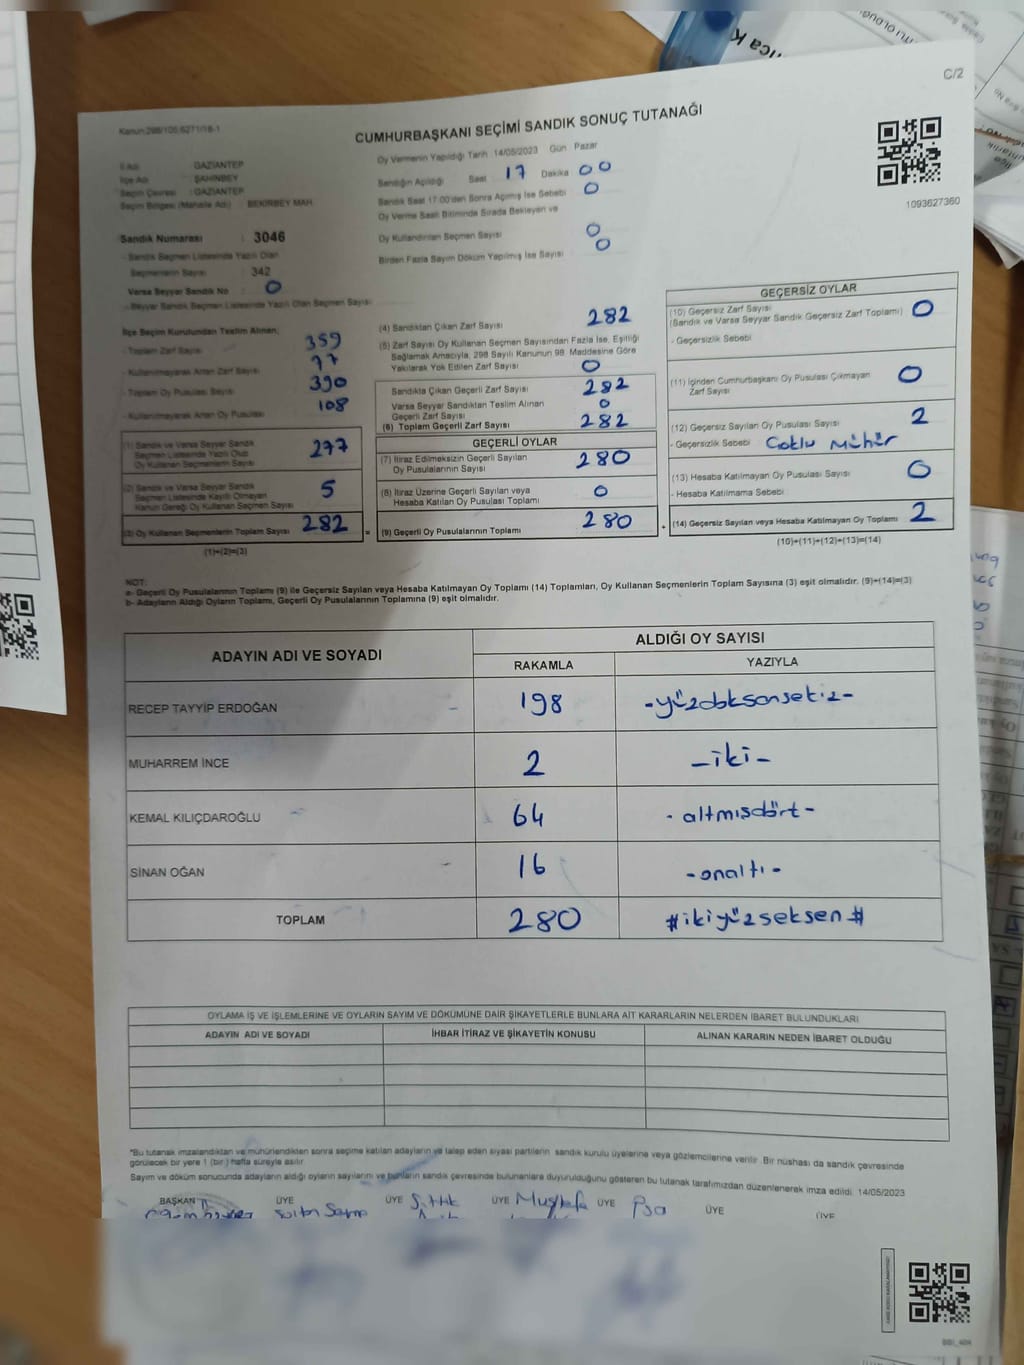 C/2
Kanun:298/105;6271/18-1
CUMHURBAŞKANI SEÇİMİ SANDIK SONUÇ TUTANAĞI
1093627360
İl Adı : GAZİANTEP
İlçe Adı : ŞAHİNBEY
Seçim Çevresi : GAZİANTEP
Seçim Bölgesi (Mahalle Adı) : BEKİRBEY MAH.
Sandık Numarası : 3046
- Sandık Seçmen Listesinde Yazılı Olan
Seçmenlerin Sayısı : 342
Varsa Seyyar Sandık No : 0
- Seyyar Sandık Seçmen Listesinde Yazılı Olan Seçmen Sayısı:
Oy Vermenin Yapıldığı Tarih 14/05/2023 Gün Pazar
Sandığın Açıldığı Saat 17 Dakika 00
Sandık Saat 17:00'den Sonra Açılmış İse Sebebi 0
Oy Verme Saati Bitiminde Sırada Bekleyen ve
Oy Kullandırılan Seçmen Sayısı 0
Birden Fazla Sayım Döküm Yapılmış İse Sayısı 0
İlçe Seçim Kurulundan Teslim Alınan;
- Toplam Zarf Sayısı 359
- Kullanılmayarak Artan Zarf Sayısı 77
- Toplam Oy Pusulası 390
- Kullanılmayarak Artan Oy Pusulası 108
(1) Sandık ve Varsa Seyyar Sandık
Seçmen Listesinde Yazılı Olup
Oy Kullanan Seçmenlerin Sayısı 277
(2) Sandık ve Varsa Seyyar Sandık
Seçmen Listesinde Kayıtlı Olmayan
Kanun Gereği Oy Kullanan Seçmen Sayısı 5
(3) Oy Kullanan Seçmenlerin Toplam Sayısı 282 =
(1)+(2)=(3)
(4) Sandıktan Çıkan Zarf Sayısı 282
(5) Zarf Sayısı Oy Kullanan Seçmen Sayısından Fazla İse, Eşitliği
Sağlamak Amacıyla, 298 Sayılı Kanunun 98. Maddesine Göre
Yakılarak Yok Edilen Zarf Sayısı 0
Sandıkta Çıkan Geçerli Zarf Sayısı 282
Varsa Seyyar Sandıktan Teslim Alınan
Geçerli Zarf Sayısı 0
(6) Toplam Geçerli Zarf Sayısı 282
GEÇERLİ OYLAR
(7) İtiraz Edilmeksizin Geçerli Sayılan
Oy Pusulalarının Sayısı 280
(8) İtiraz Üzerine Geçerli Sayılan veya
Hesaba Katılan Oy Pusulası Toplamı 0
(9) Geçerli Oy Pusulalarının Toplamı 280 +
GEÇERSİZ OYLAR
(10) Geçersiz Zarf Sayısı
(Sandık ve Varsa Seyyar Sandık Geçersiz Zarf Toplamı) 0
- Geçersizlik Sebebi
(11) İçinden Cumhurbaşkanı Oy Pusulası Çıkmayan
Zarf Sayısı 0
(12) Geçersiz Sayılan Oy Pusulası Sayısı 2
- Geçersizlik Sebebi Çoklu Mühür
(13) Hesaba Katılmayan Oy Pusulası Sayısı 0
- Hesaba Katılmama Sebebi
(14) Geçersiz Sayılan veya Hesaba Katılmayan Oy Toplamı 2
(10)+(11)+(12)+(13)=(14)
NOT:
a- Geçerli Oy Pusulalarının Toplamı (9) ile Geçersiz Sayılan veya Hesaba Katılmayan Oy Toplamı (14) Toplamları, Oy Kullanan Seçmenlerin Toplam Sayısına (3) eşit olmalıdır. (9)+(14)=(3)
b- Adayların Aldığı Oyların Toplamı, Geçerli Oy Pusulalarının Toplamına (9) eşit olmalıdır.
ADAYIN ADI VE SOYADI ALDIĞI OY SAYISI
RAKAMLA YAZIYLA
RECEP TAYYİP ERDOĞAN 198 -yüzdoksansekiz-
MUHARREM İNCE 2 -iki-
KEMAL KILIÇDAROĞLU 64 -altmışdört-
SİNAN OĞAN 16 -onaltı-
TOPLAM 280 #ikiyüzseksen#
OYLAMA İŞ VE İŞLEMLERİNE VE OYLARIN SAYIM VE DÖKÜMÜNE DAİR ŞİKAYETLERLE BUNLARA AİT KARARLARIN NELERDEN İBARET BULUNDUKLARI
ADAYIN ADI VE SOYADI İHBAR İTİRAZ VE ŞİKAYETİN KONUSU ALINAN KARARIN NEDEN İBARET OLDUĞU
*Bu tutanak imzalandıktan ve mühürlendikten sonra seçime katılan adayların ve talep eden siyasi partilerin sandık kurulu üyelerine veya gözlemcilerine verilir. Bir nüshası da sandık çevresinde
görülecek bir yere 1 (bir) hafta süreyle asılır.
Sayım ve döküm sonucunda adayların aldığı oyların sayılarını ve bunların sandık çevresinde bulunanlara duyurulduğunu gösteren bu tutanak tarafımızdan düzenlenerek imza edildi. 14/05/2023
BAŞKAN ÜYE ÜYE Sıttık ÜYE Mustafa ÜYE ÜYE ÜYE